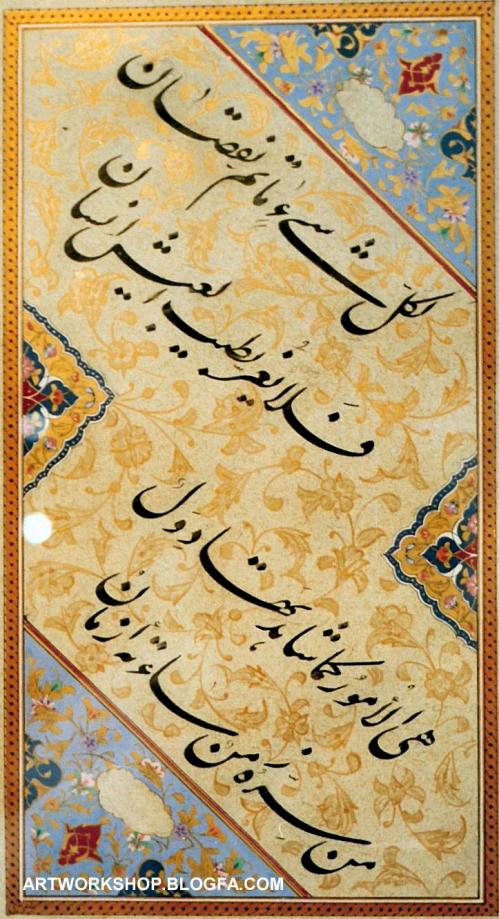 لکل شیء اذا ما تم نقصان
فلا یغر بطیب العیش انسان
هی الأمور کما شاهدتها دول
من سره زمن ساءته أزمان
ARTWORKSHOP.BLOGFA.COM